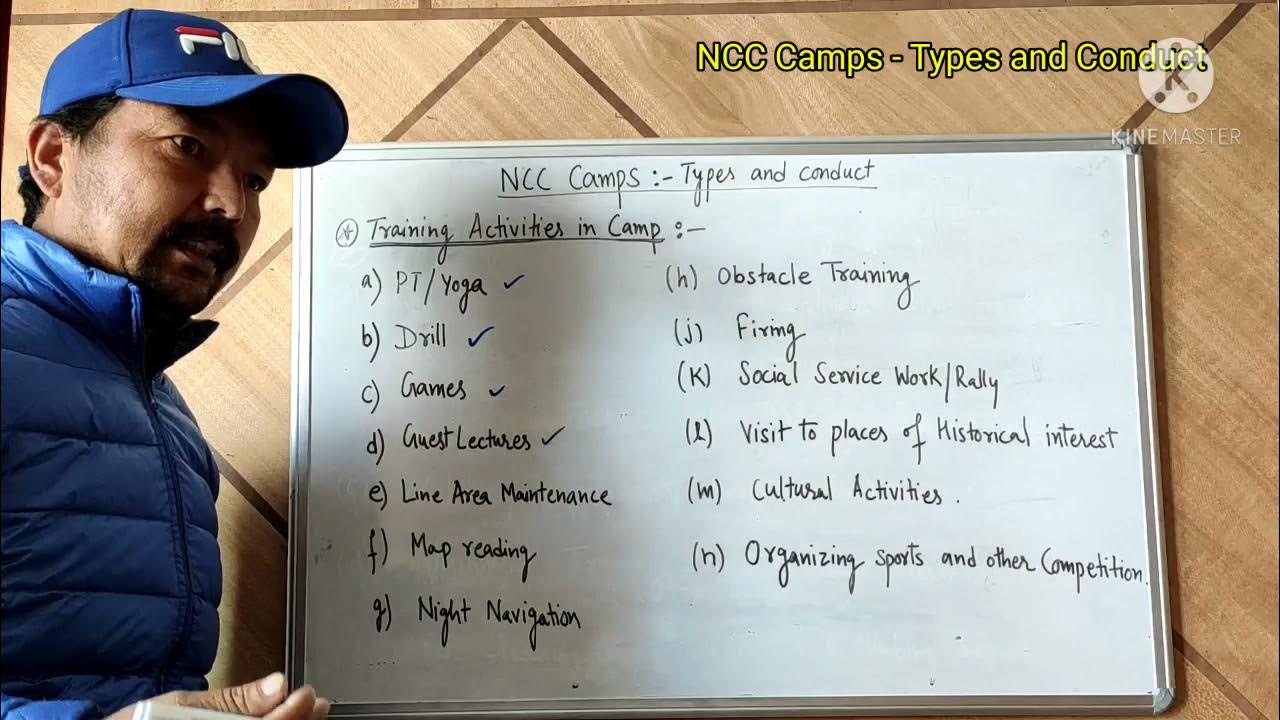 FILA
NCC Camps - Types and Conduct
K
KINEMASTER
NCC Camps :- Types and conduct
* Training Activities in Camp :-
a) PT/Yoga ✓
b) Drill ✓
c) Games ✓
d) Guest Lectures ✓
e) Line Area Maintenance
f) Map reading
g) Night Navigation
(h) Obstacle Training
(j) Firing
(K) Social Service Work/Rally
(l) Visit to places of Historical interest
(m) Cultural Activities.
(n) Organizing sports and other Competition.